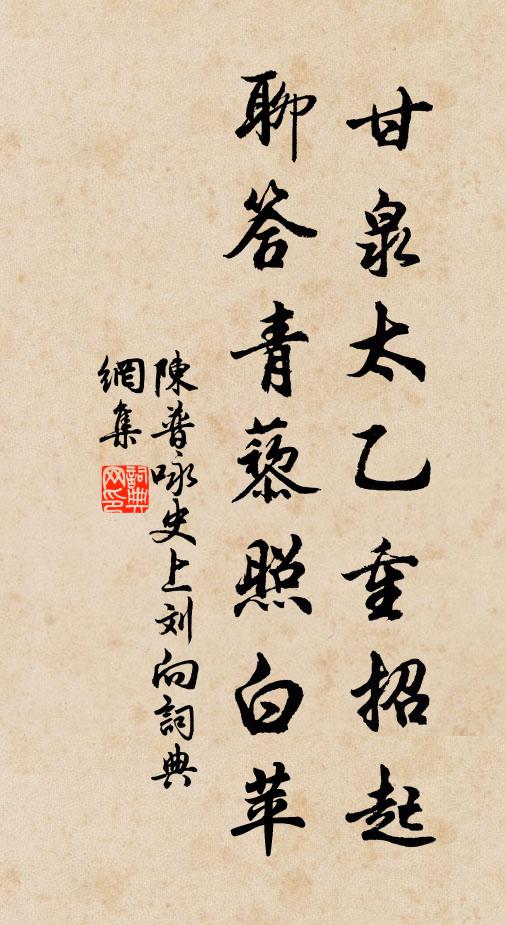 甘泉太乙重招起
聊答青藜照白苹
陳普咏史上刘向詞典
網集
詞典
网印